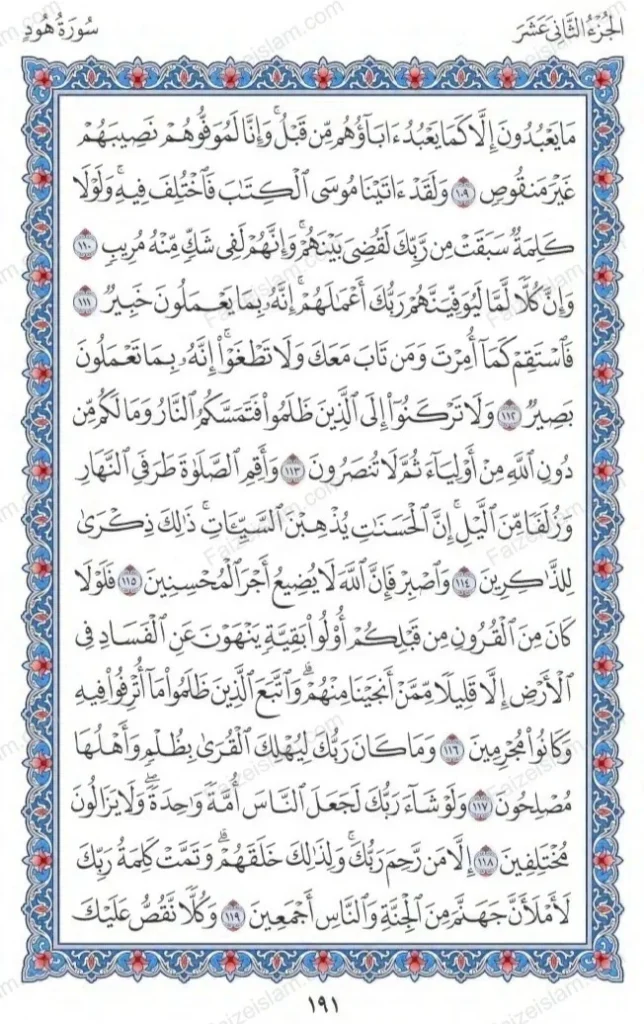 الجزء الثاني عشر
سورة هود
مَا يَعْبُدُونَ إِلَّا كَمَا يَعْبُدُ ءَابَآؤُهُم مِّن قَبْلُ ۚ وَإِنَّا لَمُوَفُّوهُمْ نَصِيبَهُمْ
غَيْرَ مَنقُوصٍ ١٠٩ وَلَقَدْ ءَاتَيْنَا مُوسَى ٱلْكِتَٰبَ فَٱخْتُلِفَ فِيهِ ۚ وَلَوْلَا
كَلِمَةٌ سَبَقَتْ مِن رَّبِّكَ لَقُضِىَ بَيْنَهُمْ ۚ وَإِنَّهُمْ لَفِى شَكٍّ مِّنْهُ مُرِيبٍ ١١٠
وَإِنَّ كُلًّا لَّمَّا لَيُوَفِّيَنَّهُمْ رَبُّكَ أَعْمَٰلَهُمْ ۚ إِنَّهُۥ بِمَا يَعْمَلُونَ خَبِيرٌ ١١١
فَٱسْتَقِمْ كَمَآ أُمِرْتَ وَمَن تَابَ مَعَكَ وَلَا تَطْغَوْا۟ ۚ إِنَّهُۥ بِمَا تَعْمَلُونَ
بَصِيرٌ ١١٢ وَلَا تَرْكَنُوٓا۟ إِلَى ٱلَّذِينَ ظَلَمُوا۟ فَتَمَسَّكُمُ ٱلنَّارُ وَمَا لَكُم مِّن
دُونِ ٱللَّهِ مِنْ أَوْلِيَآءَ ثُمَّ لَا تُنصَرُونَ ١١٣ وَأَقِمِ ٱلصَّلَوٰةَ طَرَفَىِ ٱلنَّهَارِ
وَزُلَفًا مِّنَ ٱلَّيْلِ ۚ إِنَّ ٱلْحَسَنَٰتِ يُذْهِبْنَ ٱلسَّيِّـَٔاتِ ۚ ذَٰلِكَ ذِكْرَىٰ
لِلذَّٰكِرِينَ ١١٤ وَٱصْبِرْ فَإِنَّ ٱللَّهَ لَا يُضِيعُ أَجْرَ ٱلْمُحْسِنِينَ ١١٥ فَلَوْلَا
كَانَ مِنَ ٱلْقُرُونِ مِن قَبْلِكُمْ أُو۟لُوا۟ بَقِيَّةٍ يَنْهَوْنَ عَنِ ٱلْفَسَادِ فِى
ٱلْأَرْضِ إِلَّا قَلِيلًا مِّمَّنْ أَنجَيْنَا مِنْهُمْ ۗ وَٱتَّبَعَ ٱلَّذِينَ ظَلَمُوا۟ مَآ أُتْرِفُوا۟ فِيهِ
وَكَانُوا۟ مُجْرِمِينَ ١١٦ وَمَا كَانَ رَبُّكَ لِيُهْلِكَ ٱلْقُرَىٰ بِظُلْمٍ وَأَهْلُهَا
مُصْلِحُونَ ١١٧ وَلَوْ شَآءَ رَبُّكَ لَجَعَلَ ٱلنَّاسَ أُمَّةً وَٰحِدَةً ۖ وَلَا يَزَالُونَ
مُخْتَلِفِينَ ١١٨ إِلَّا مَن رَّحِمَ رَبُّكَ ۚ وَلِذَٰلِكَ خَلَقَهُمْ ۗ وَتَمَّتْ كَلِمَةُ رَبِّكَ
لَأَمْلَأَنَّ جَهَنَّمَ مِنَ ٱلْجِنَّةِ وَٱلنَّاسِ أَجْمَعِينَ ١١٩ وَكُلًّا نَّقُصُّ عَلَيْكَ
١٩١
Faizeislam.com